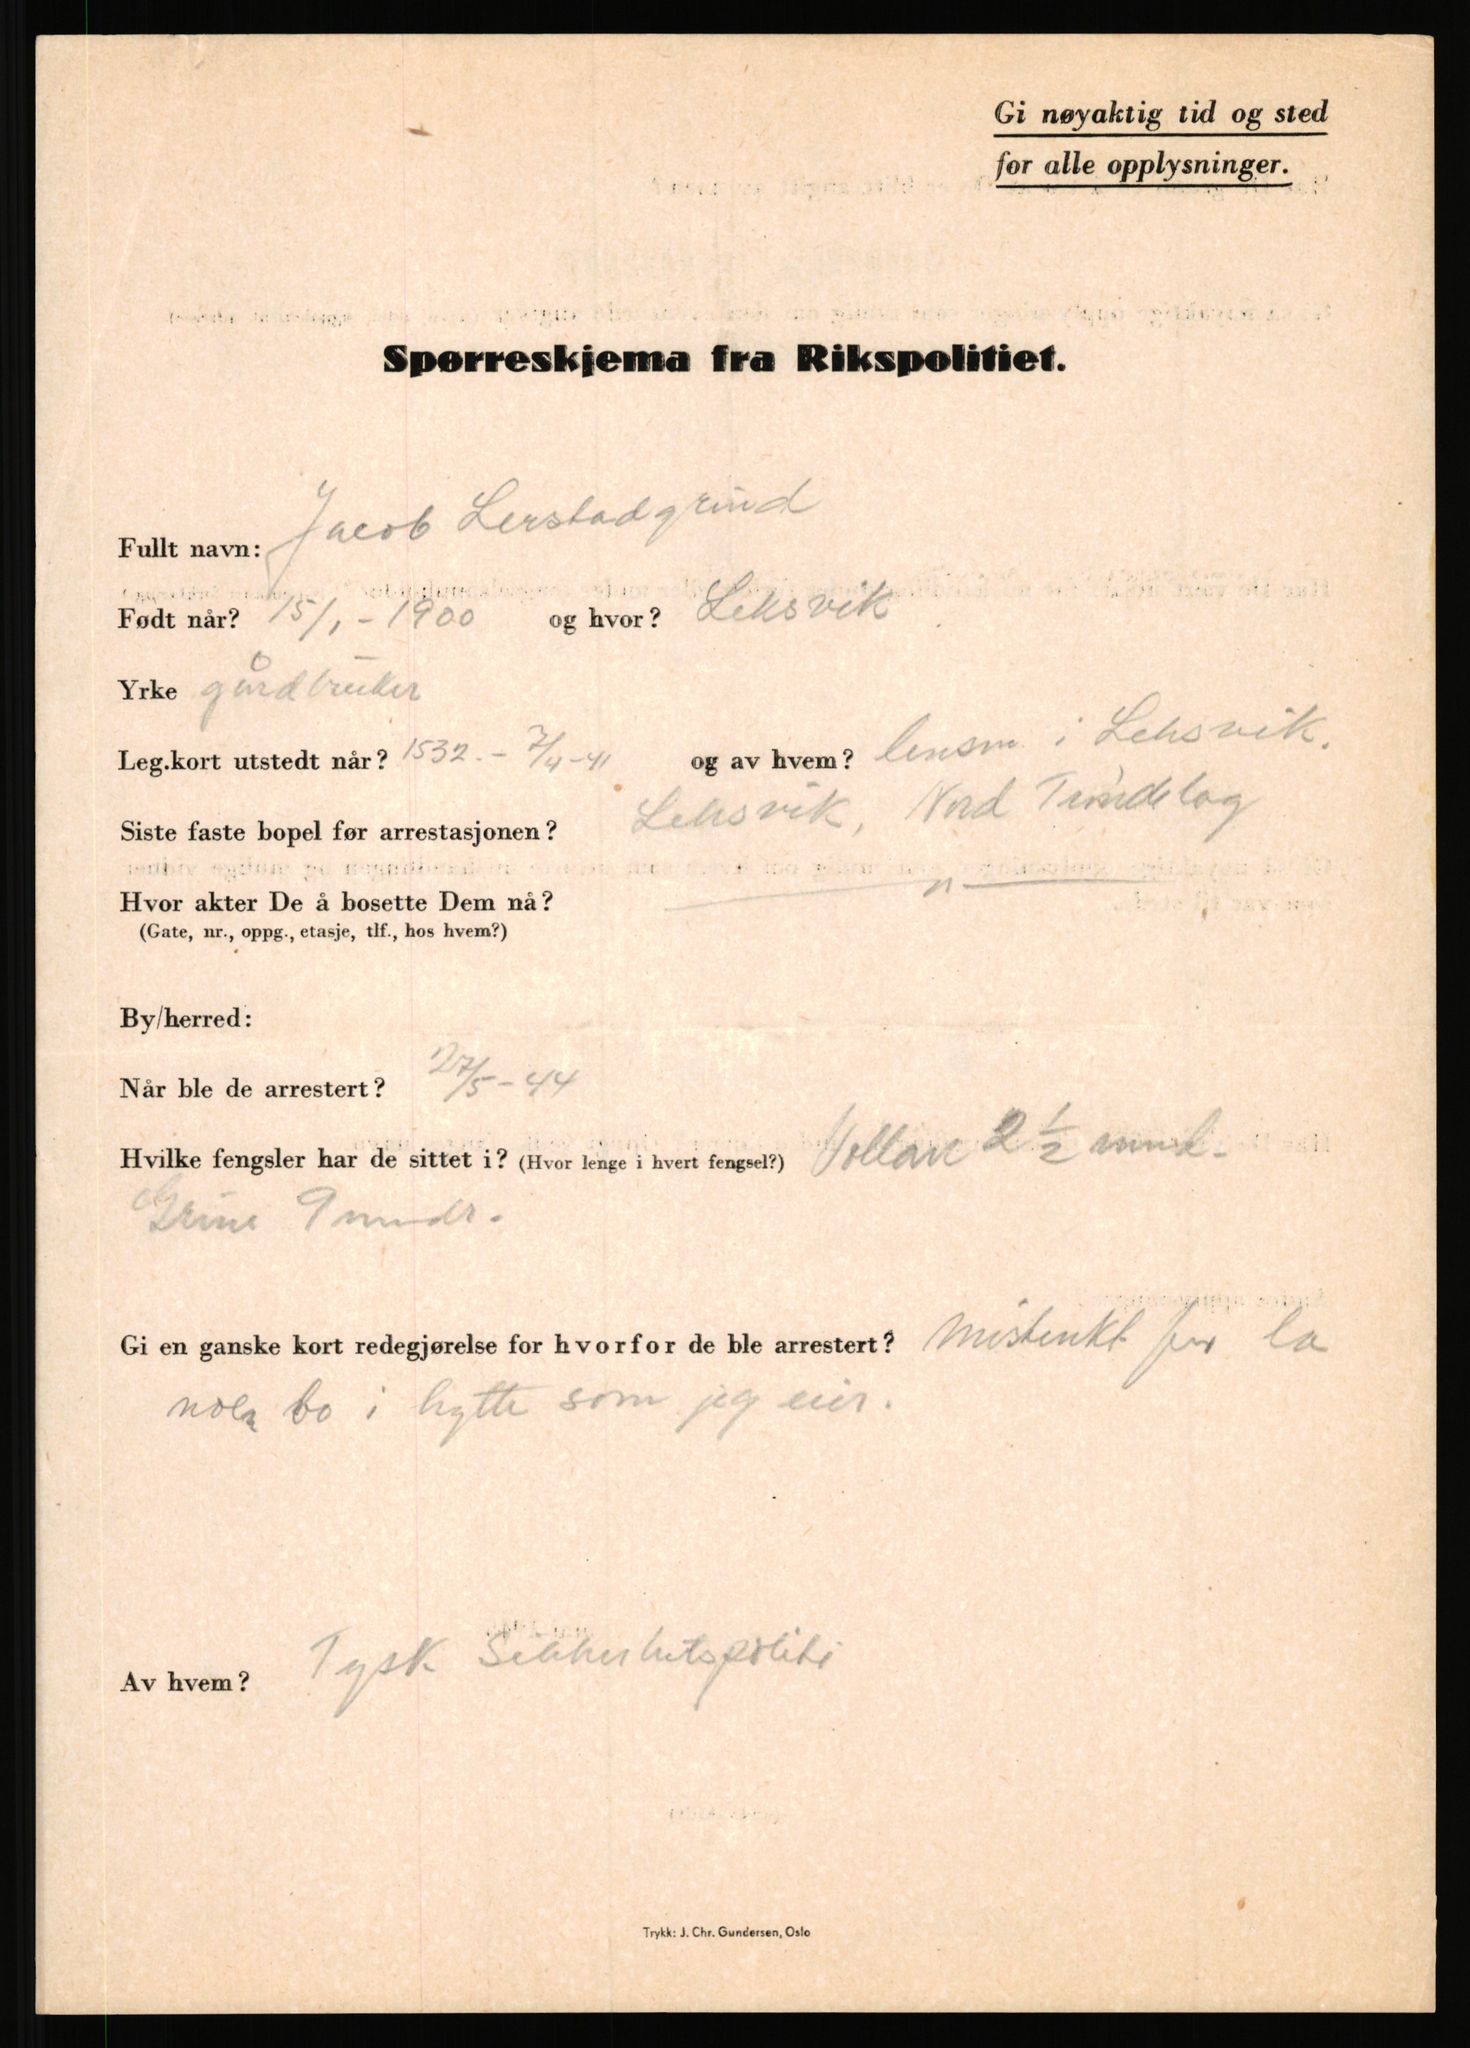 Gi nøyaktig tid og sted
for alle opplysninger.
Spørreskjema fra Rikspolitiet.
Fullt navn: Jacob Lerstadgrind
Født når? 15/1 - 1900 og hvor? Leksvik
Yrke gårdbruker
Leg.kort utstedt når? 1532. - 7/4-41 og av hvem? lensm i Leksvik.
Siste faste bopel før arrestasjonen? Leksvik, Nord Trøndelag
Hvor akter De å bosette Dem nå? — " —
(Gate, nr., oppg., etasje, tlf., hos hvem?)
By/herred:
Når ble de arrestert? 27/5-44
Hvilke fengsler har de sittet i? (Hvor lenge i hvert fengsel?) Vollan 2 1/2 mnd.
Grini 9 mndr.
Gi en ganske kort redegjørelse for hvorfor de ble arrestert? Mistenkt for la
noen bo i hytte som jeg eier.
Av hvem? Tysk Sikkerhetspoliti
Trykk: J. Chr. Gundersen, Oslo